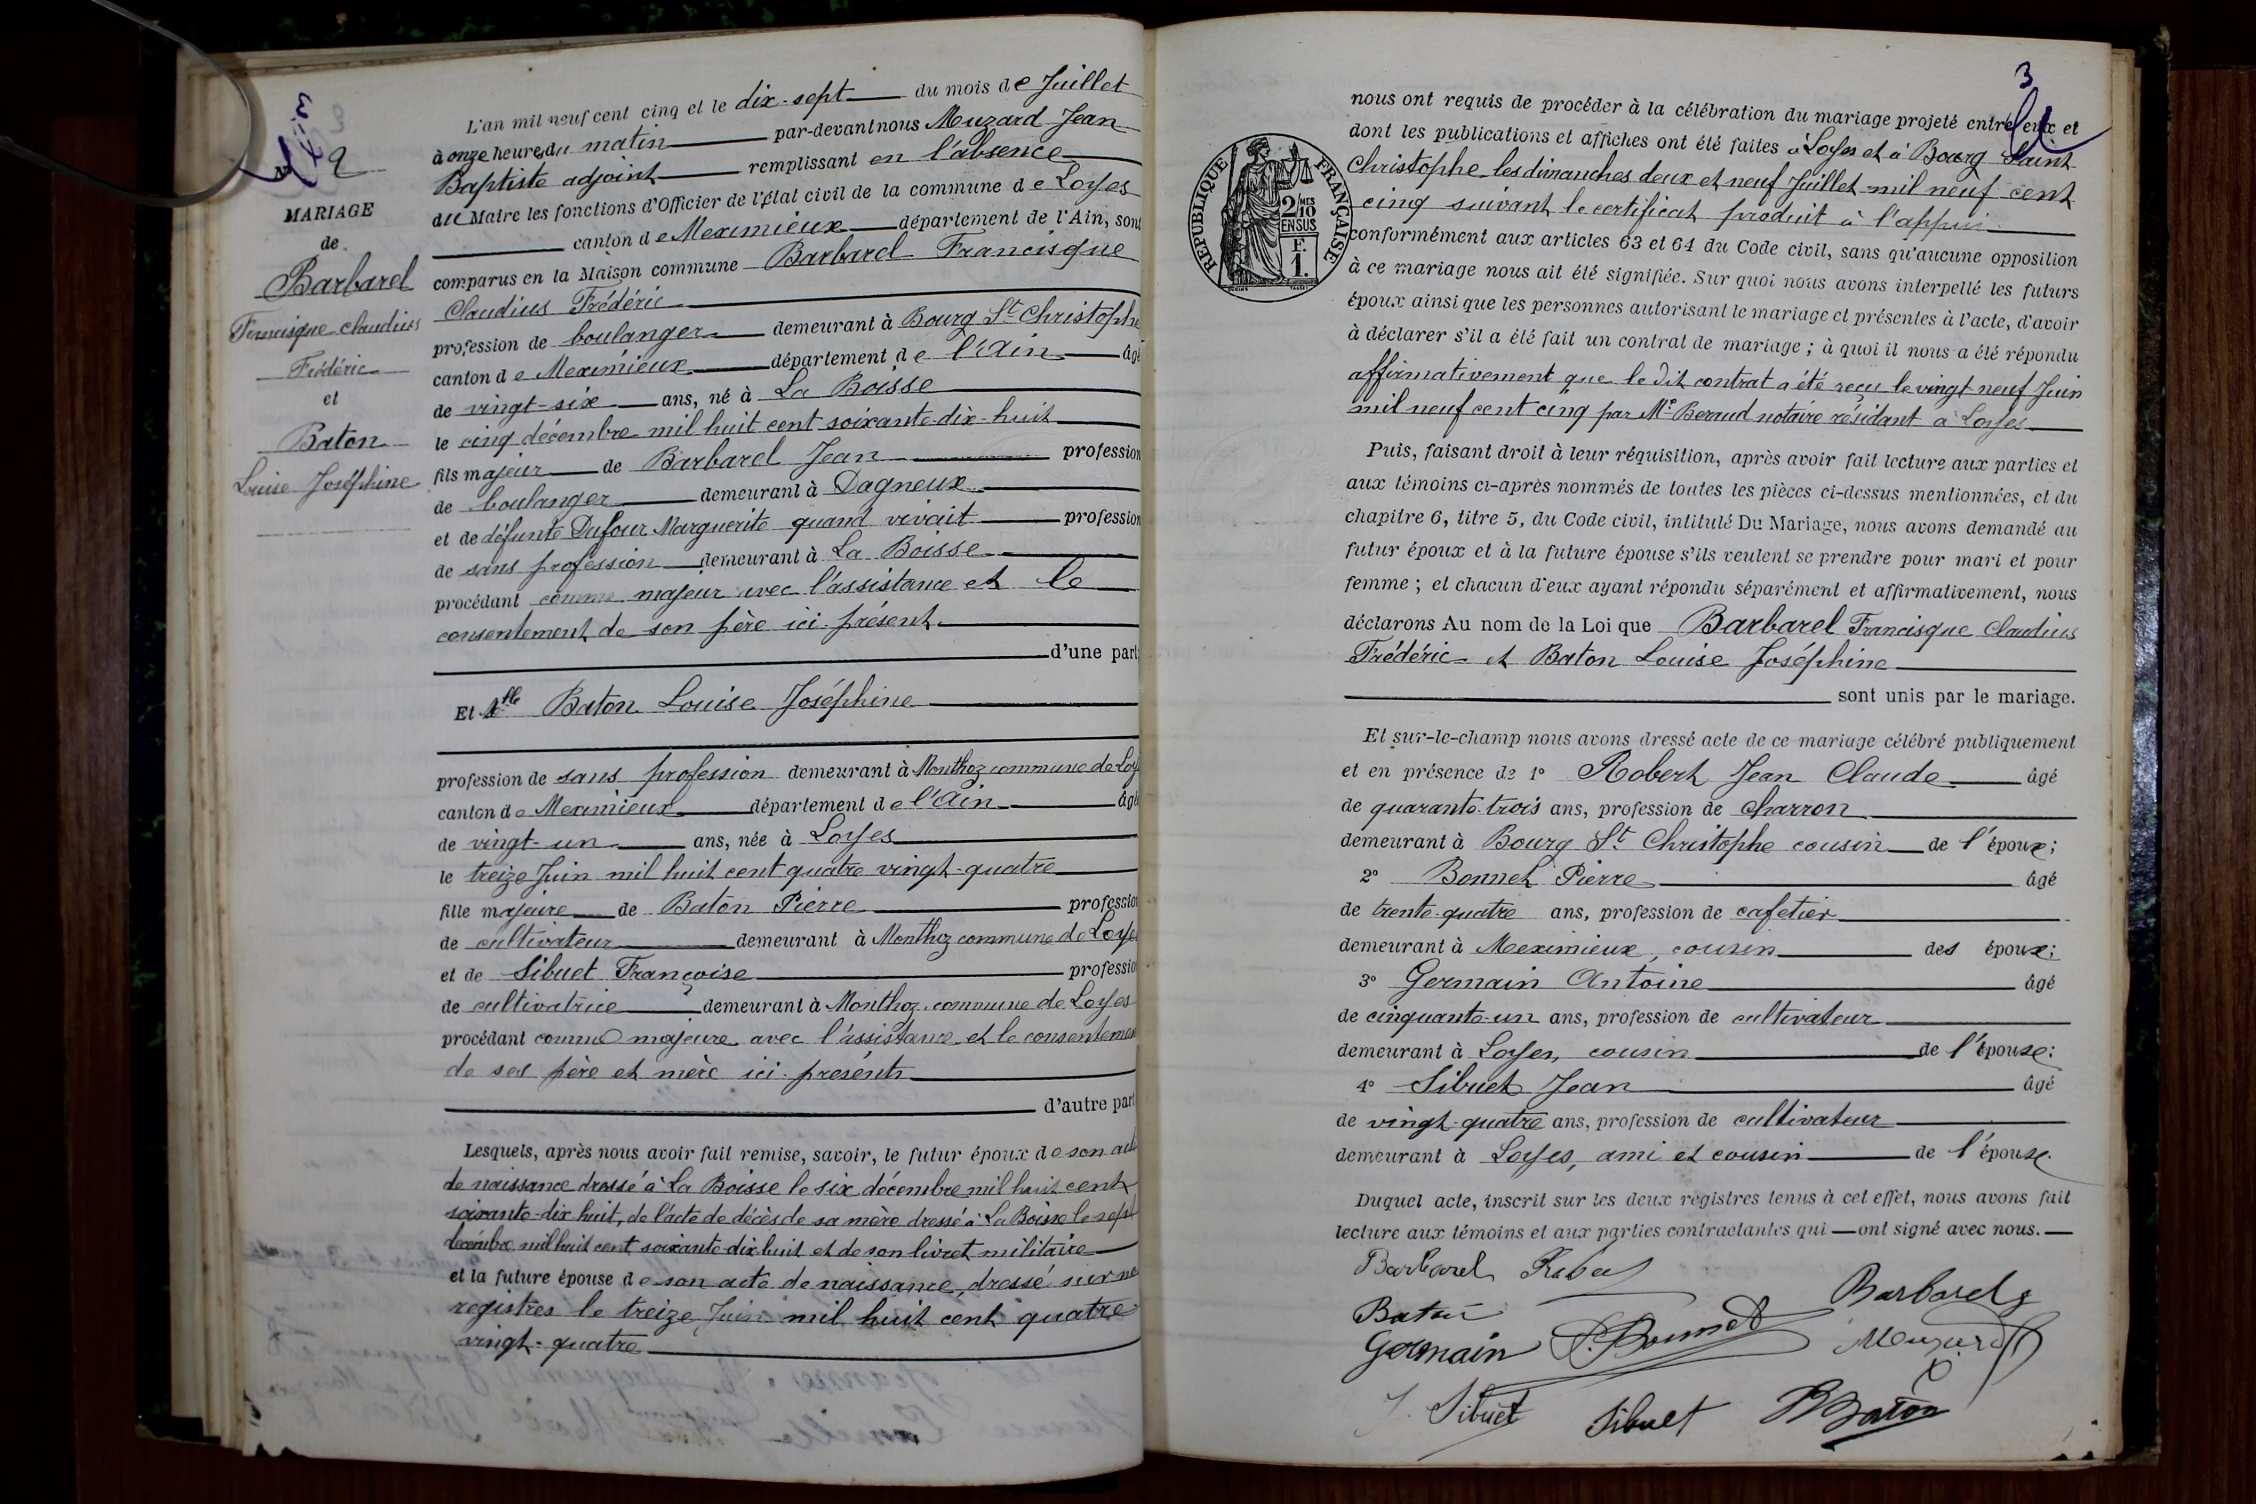 2
MARIAGE
de
Barbarel
Francisque Claudius
Frédéric
et
Baton
Louise Joséphine
L'an mil neuf cent cinq et le dix-sept du mois de Juillet
à onze heures du matin par-devant nous Muzard Jean
Baptiste adjoint remplissant en l'absence
du Maire les fonctions d'Officier de l'État civil de la commune de Loyes
canton de Meximieux département de l'Ain, sont
comparus en la Maison commune Barbarel Francisque
Claudius Frédéric
profession de boulanger demeurant à Bourg St Christophe
canton de Meximieux département de l'Ain âgé
de vingt-six ans, né à La Boisse
le cinq décembre mil huit cent soixante-dix-huit
fils majeur de Barbarel Jean profession
de boulanger demeurant à Dagneux
et de défunte Dufour Marguerite quand vivait profession
de sans profession demeurant à La Boisse
procédant comme majeur avec l'assistance et le
consentement de son père ici présent
d'une part;
Et Dlle Baton Louise Joséphine
profession de sans profession demeurant à Monthoz commune de Loy
canton de Meximieux département de l'Ain âgé
de vingt-un ans, née à Loyes
le treize Juin mil huit cent quatre vingt-quatre
fille majeure de Baton Pierre profession
de cultivateur demeurant à Monthoz commune de Loyes
et de Sibuet Françoise profession
de cultivatrice demeurant à Monthoz commune de Loyes
procédant comme majeure avec l'assistance et le consentement
de ses père et mère ici présents
d'autre part
Lesquels, après nous avoir fait remise, savoir, le futur époux de son acte
de naissance dressé à La Boisse le six décembre mil huit cent
soixante-dix huit, de l'acte de décès de sa mère dressé à La Boisse le sept
décembre mil huit cent soixante-dix huit et de son livret militaire
et la future épouse de son acte de naissance, dressé sur nos
registres le treize Juin mil huit cent quatre
vingt-quatre
3
nous ont requis de procéder à la célébration du mariage projeté entre eux et
dont les publications et affiches ont été faites à Loyes et à Bourg Saint
Christophe les dimanches deux et neuf Juillet mil neuf cent
cinq suivant le certificat produit à l'appui
RÉPUBLIQUE FRANÇAISE
2/10 MES
EN SUS
F.
1.
conformément aux articles 63 et 64 du Code civil, sans qu'aucune opposition
à ce mariage nous ait été signifiée. Sur quoi nous avons interpellé les futurs
époux ainsi que les personnes autorisant le mariage et présentes à l'acte, d'avoir
à déclarer s'il a été fait un contrat de mariage; à quoi il nous a été répondu
affirmativement que le dit contrat a été reçu le vingt neuf Juin
mil neuf cent cinq par Me Beraud notaire résidant à Loyes
Puis, faisant droit à leur réquisition, après avoir fait lecture aux parties et
aux témoins ci-après nommés de toutes les pièces ci-dessus mentionnées, et du
chapitre 6, titre 5, du Code civil, intitulé Du Mariage, nous avons demandé au
futur époux et à la future épouse s'ils veulent se prendre pour mari et pour
femme; et chacun d'eux ayant répondu séparément et affirmativement, nous
déclarons Au nom de la Loi que Barbarel Francisque Claudius
Frédéric et Baton Louise Joséphine
sont unis par le mariage.
Et sur-le-champ nous avons dressé acte de ce mariage célébré publiquement
et en présence de 1° Robert Jean Claude âgé
de quarante-trois ans, profession de charron
demeurant à Bourg St Christophe cousin de l'époux;
2° Bonnet Pierre âgé
de trente-quatre ans, profession de cafetier
demeurant à Meximieux, cousin des époux;
3° Germain Antoine âgé
de cinquante-un ans, profession de cultivateur
demeurant à Loyes, cousin de l'épouse;
4° Sibuet Jean âgé
de vingt-quatre ans, profession de cultivateur
demeurant à Loyes, ami et cousin de l'épouse.
Duquel acte, inscrit sur les deux régistres tenus à cet effet, nous avons fait
lecture aux témoins et aux parties contractantes qui — ont signé avec nous. —
Barbarel
Barbarel
Baton
Germain P. Bonnet Muzard
J. Sibuet Sibuet Baton